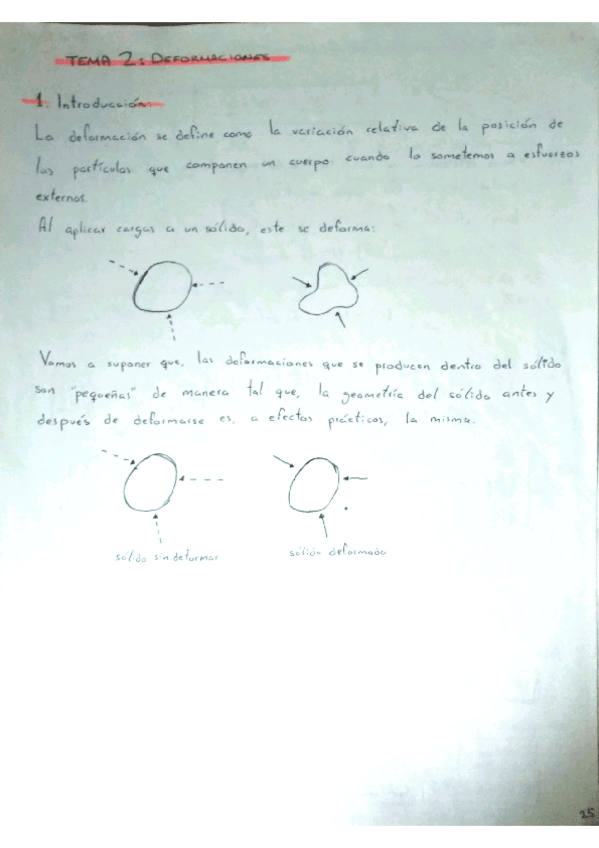 TEMA 2: DEFORMACIONES
1. Introducción:
La deformación se define como la variación relativa de la posición de
las partículas que componen un cuerpo cuando lo sometemos a esfuerzos
externos.
Al aplicar cargas a un sólido, este se deforma:
Vamos a suponer que, las deformaciones que se producen dentro del sólido
son "pequeñas" de manera tal que, la geometría del sólido antes y
después de deformarse es, a efectos prácticos, la misma.
sólido sin deformar
sólido deformado
25